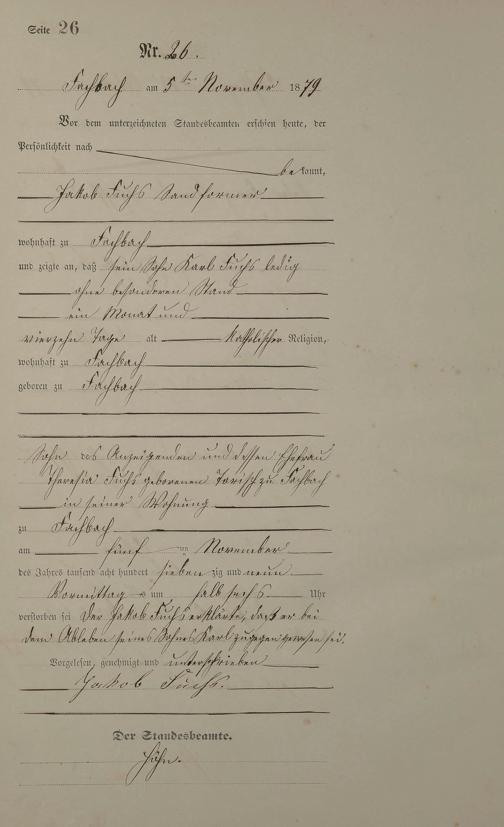 Seite 26
Nr. 26.
Fachbach am 5ten November 1879
Vor dem unterzeichneten Standesbeamten erschien heute, der
Persönlichkeit nach
bekannt,
Jakob Fuchs Sandformer
wohnhaft zu Fachbach
und zeigte an, daß sein Sohn Karl Fuchs ledig
ohne besonderen Stand
ein Monat und
vierzehn Tage alt katholischer Religion,
wohnhaft zu Fachbach
geboren zu Fachbach
Sohn des Anzeigenden und dessen Ehefrau
Theresia Fuchs geborenen zu Fachbach
in seiner Wohnung
zu Fachbach
am fünf ten November
des Jahres tausend acht hundert siebenzig und neun
Vormittags um halb sechs Uhr
verstorben sei Der Jakob Fuchs erklärte, daß er bei
dem Ableben seines Sohnes Karl zugegen gewesen sei.
Vorgelesen, genehmigt und unterschrieben
Jakob Fuchs.
Der Standesbeamte.
Höhn.